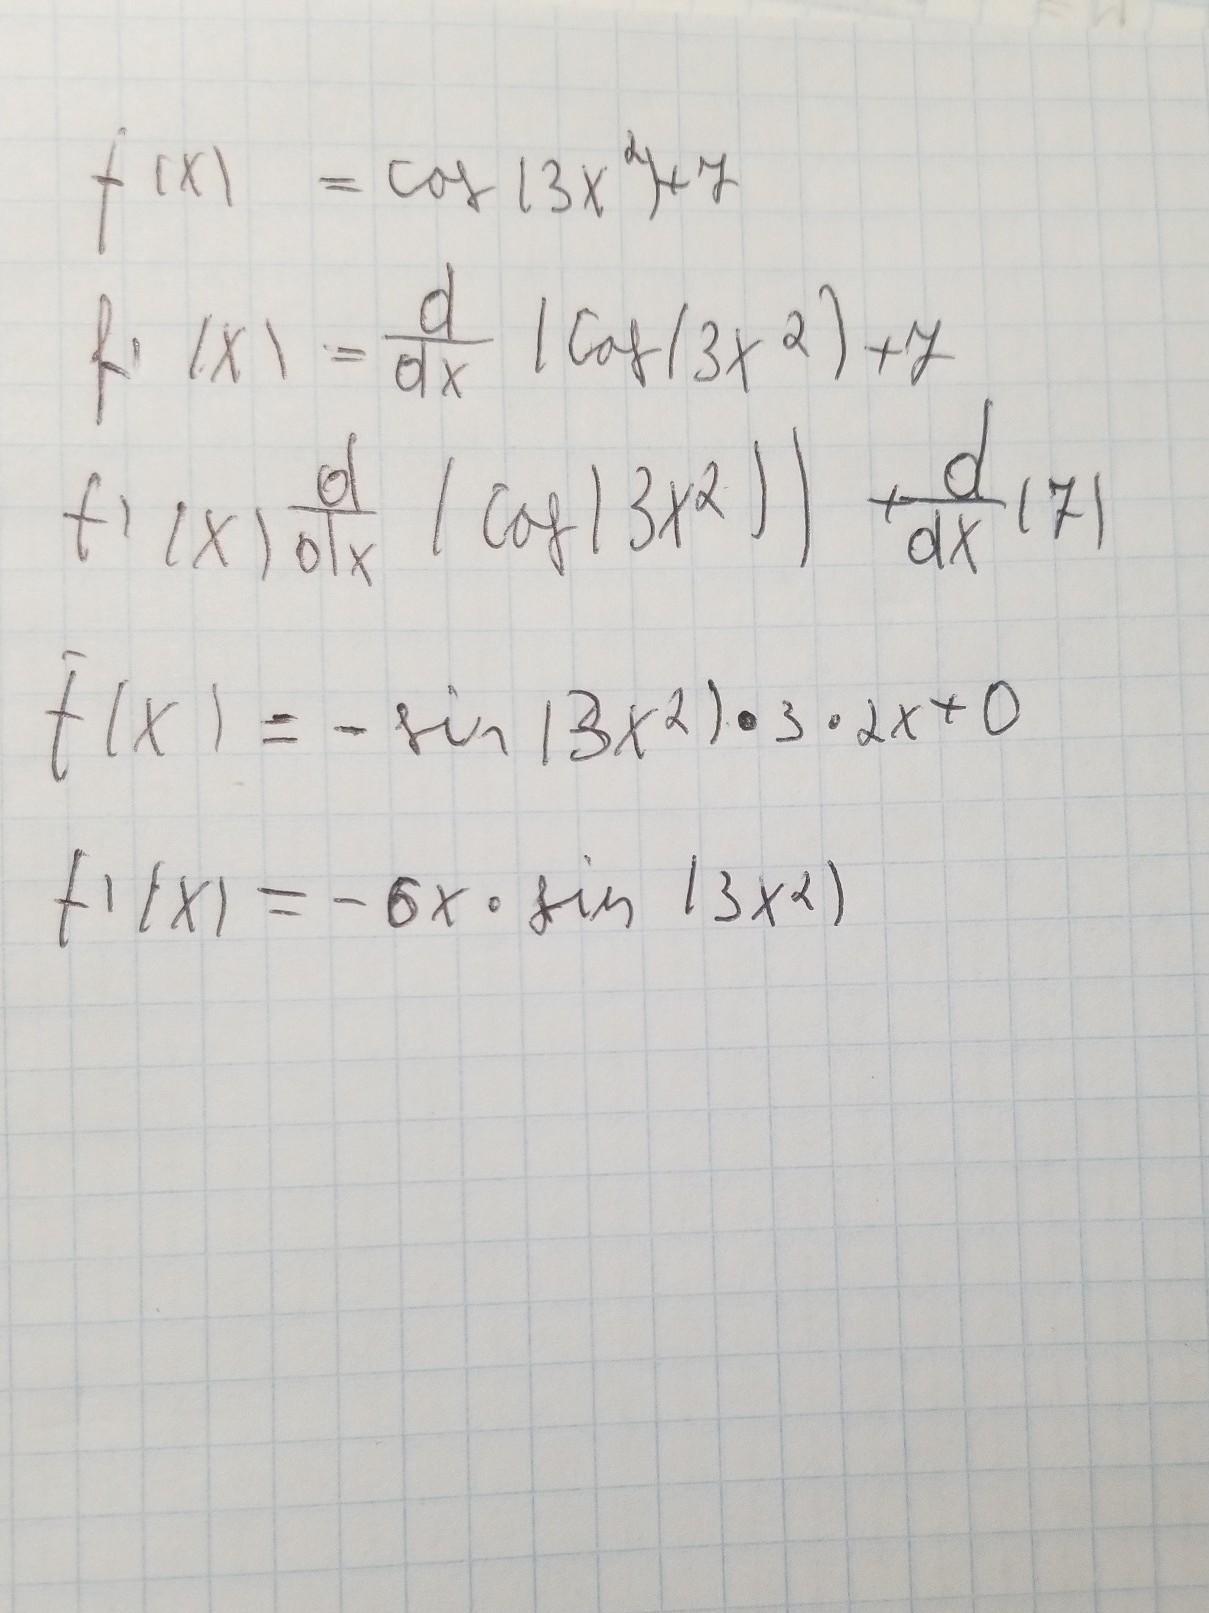 f(x) = cos(3x²)+7
f'(x) = d/dx (cos(3x2)+7
f'(x) d/dx (cos(3x2)) + d/dx (7)
f(x) = - sin(3x2)•3•2x+0
f'(x) = -6x • sin (3x2)